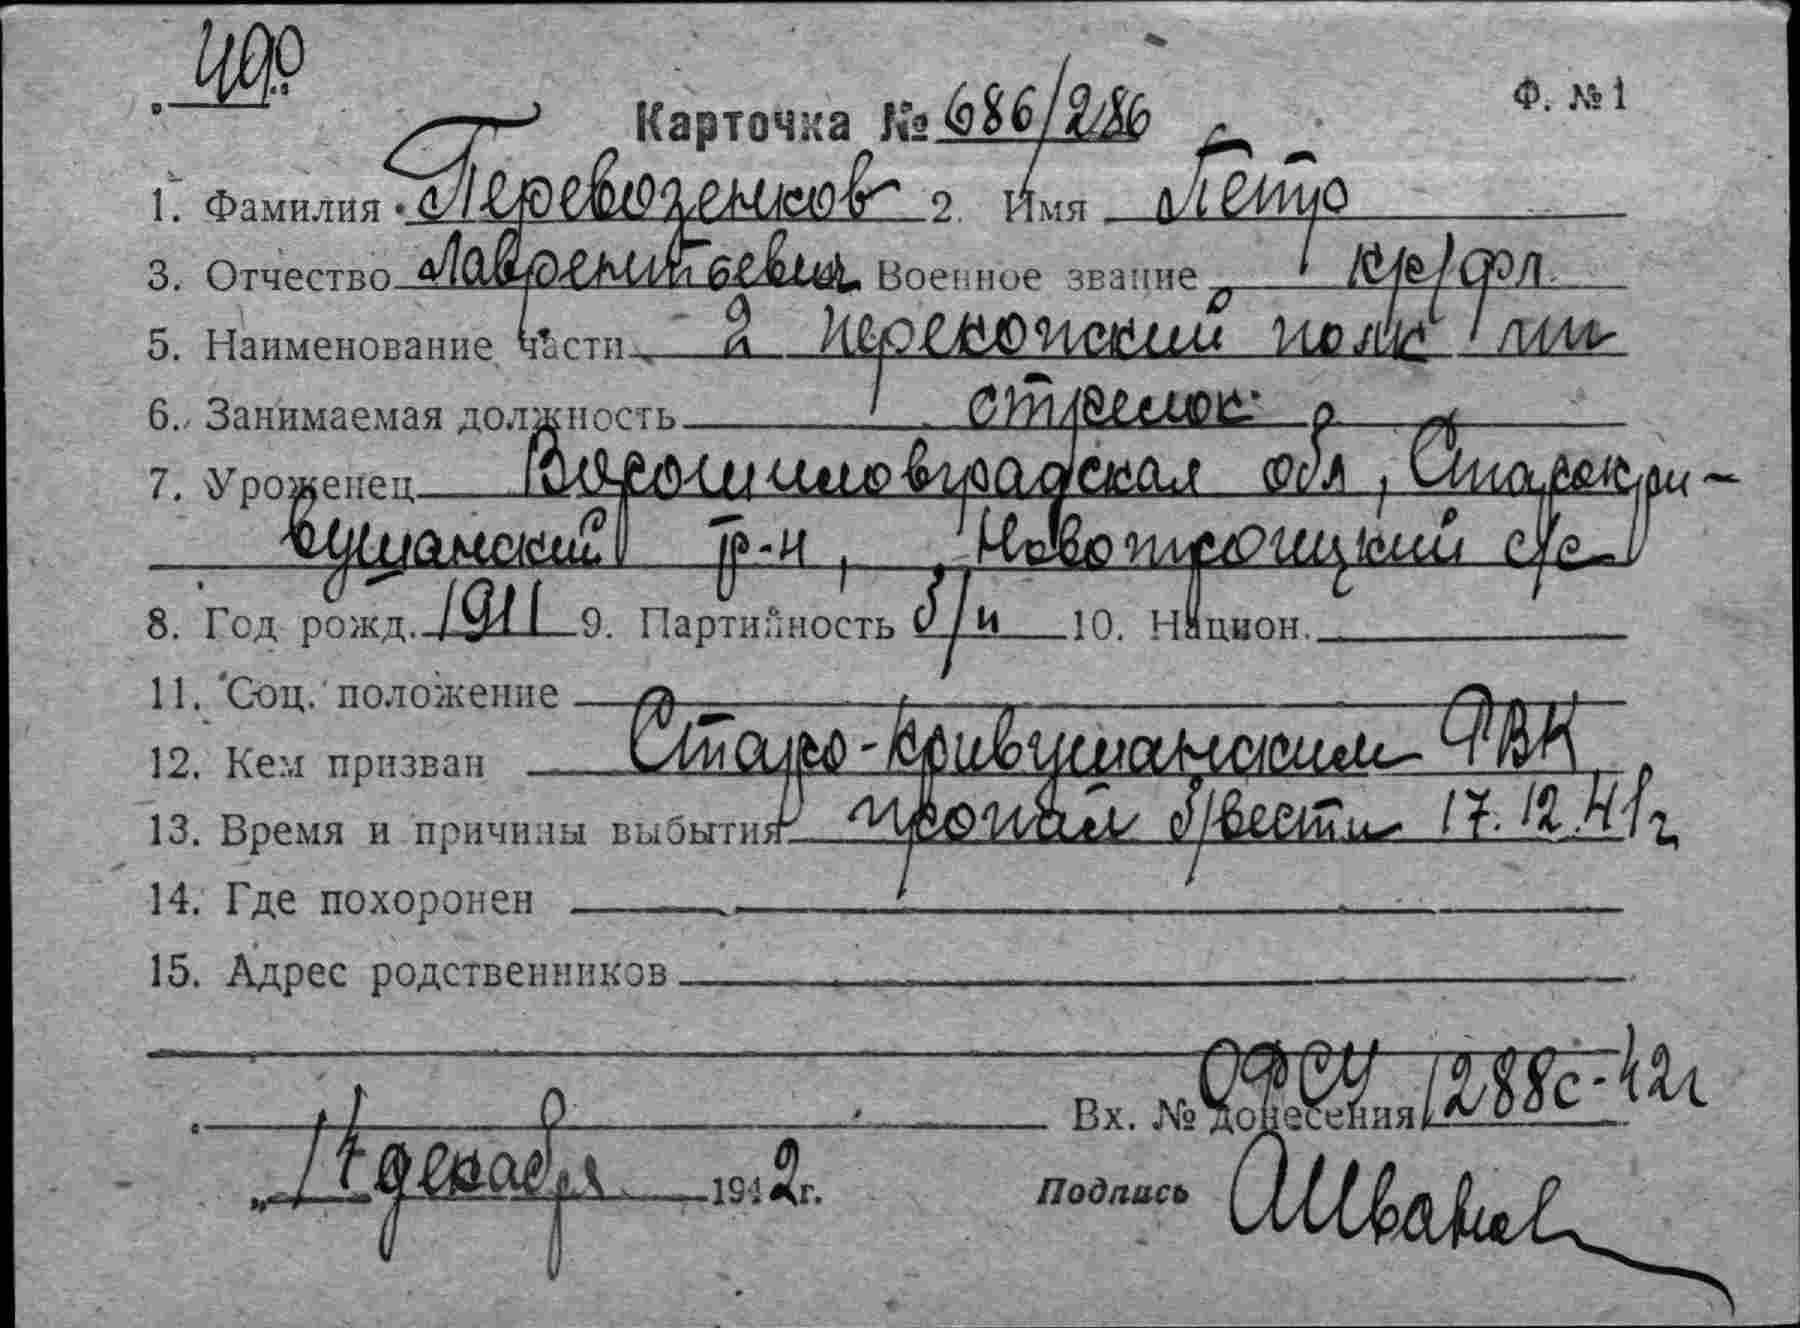 Ф. № 1
Карточка № 686/286
1. Фамилия Перевозенков 2. Имя Петр
3. Отчество Лаврентьевич Военное звание кр/фл.
5. Наименование части 2 перекопский полк мп
6. Занимаемая должность стрелок
7. Уроженец Ворошиловградская обл, Старокри-
вушанский р-н, Новотроицкий с/с
8. Год рожд. 1911 9. Партийность б/п 10. Национ.
11. Соц. положение
12. Кем призван Старо-Кривушанским РВК
13. Время и причины выбытия пропал б/вести 17.12.41г
14. Где похоронен
15. Адрес родственников
ОФСУ
Вх. № донесения 1288с-42г
„14 декабря 1942г. Подпись АИванов